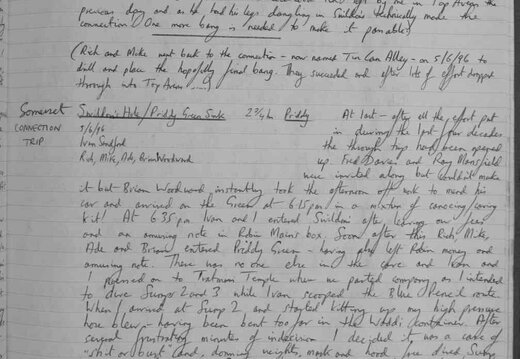 previous day and as he had his legs dangling in Swildons technically made the
connection. One more bang is needed to make it passable)
(Rich and Mike went back to the connection - now named Tin Can Alley - on 5/6/96 to
drill and place the hopefully final bang. They succeeded and after lots of effort dropped
through into Top Avon ....!)
Somerset Swildon's Hole/Priddy Green Sink 2¾ h Priddy At last - after all the effort put
CONNECTION 5/6/96 in during the last four decades
TRIP Ivan Sandford the through trip had been opened
Rich, Mike, Ade, Brian Woodward up. Fred Davies and Ray Mansfield
were invited along but couldn't make
it but Brian Woodward instantly took the afternoon off work to mend his
car and arrived on the Green at 6.15pm in a mixture of canoeing/caving
kit! At 6.35pm Ivan and I entered Swildons after leaving our fees
and an amusing note in Robin Main's box. Soon after this Rich, Mike,
Ade and Brian entered Priddy Green - having also left Robin money and
amusing note. There was no one else in the cave and Ivan and
I pressed on to Tratman Temple where we parted company as I intended
to dive Sumps 2 and 3 while Ivan scooped the Blue Pencil route.
When I arrived at Sump 2 and started kitting up my high pressure
hose blew - having been bent too far in the Waddi container. After
several frustrating minutes of indecision I decided it was a case of
"shit or bust" and, donning weights, mask and hood free dived Sump